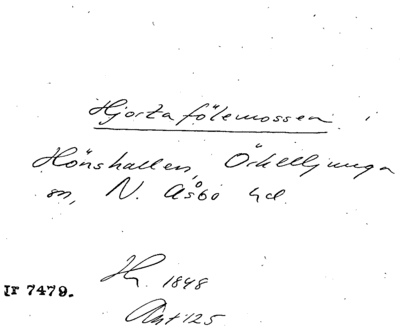 Hjortafölemossen i
Hönshallen, Örkelljunga
sn, N. Åsbo hd.
Hy. 1848
Ir 7479.
Ant 125